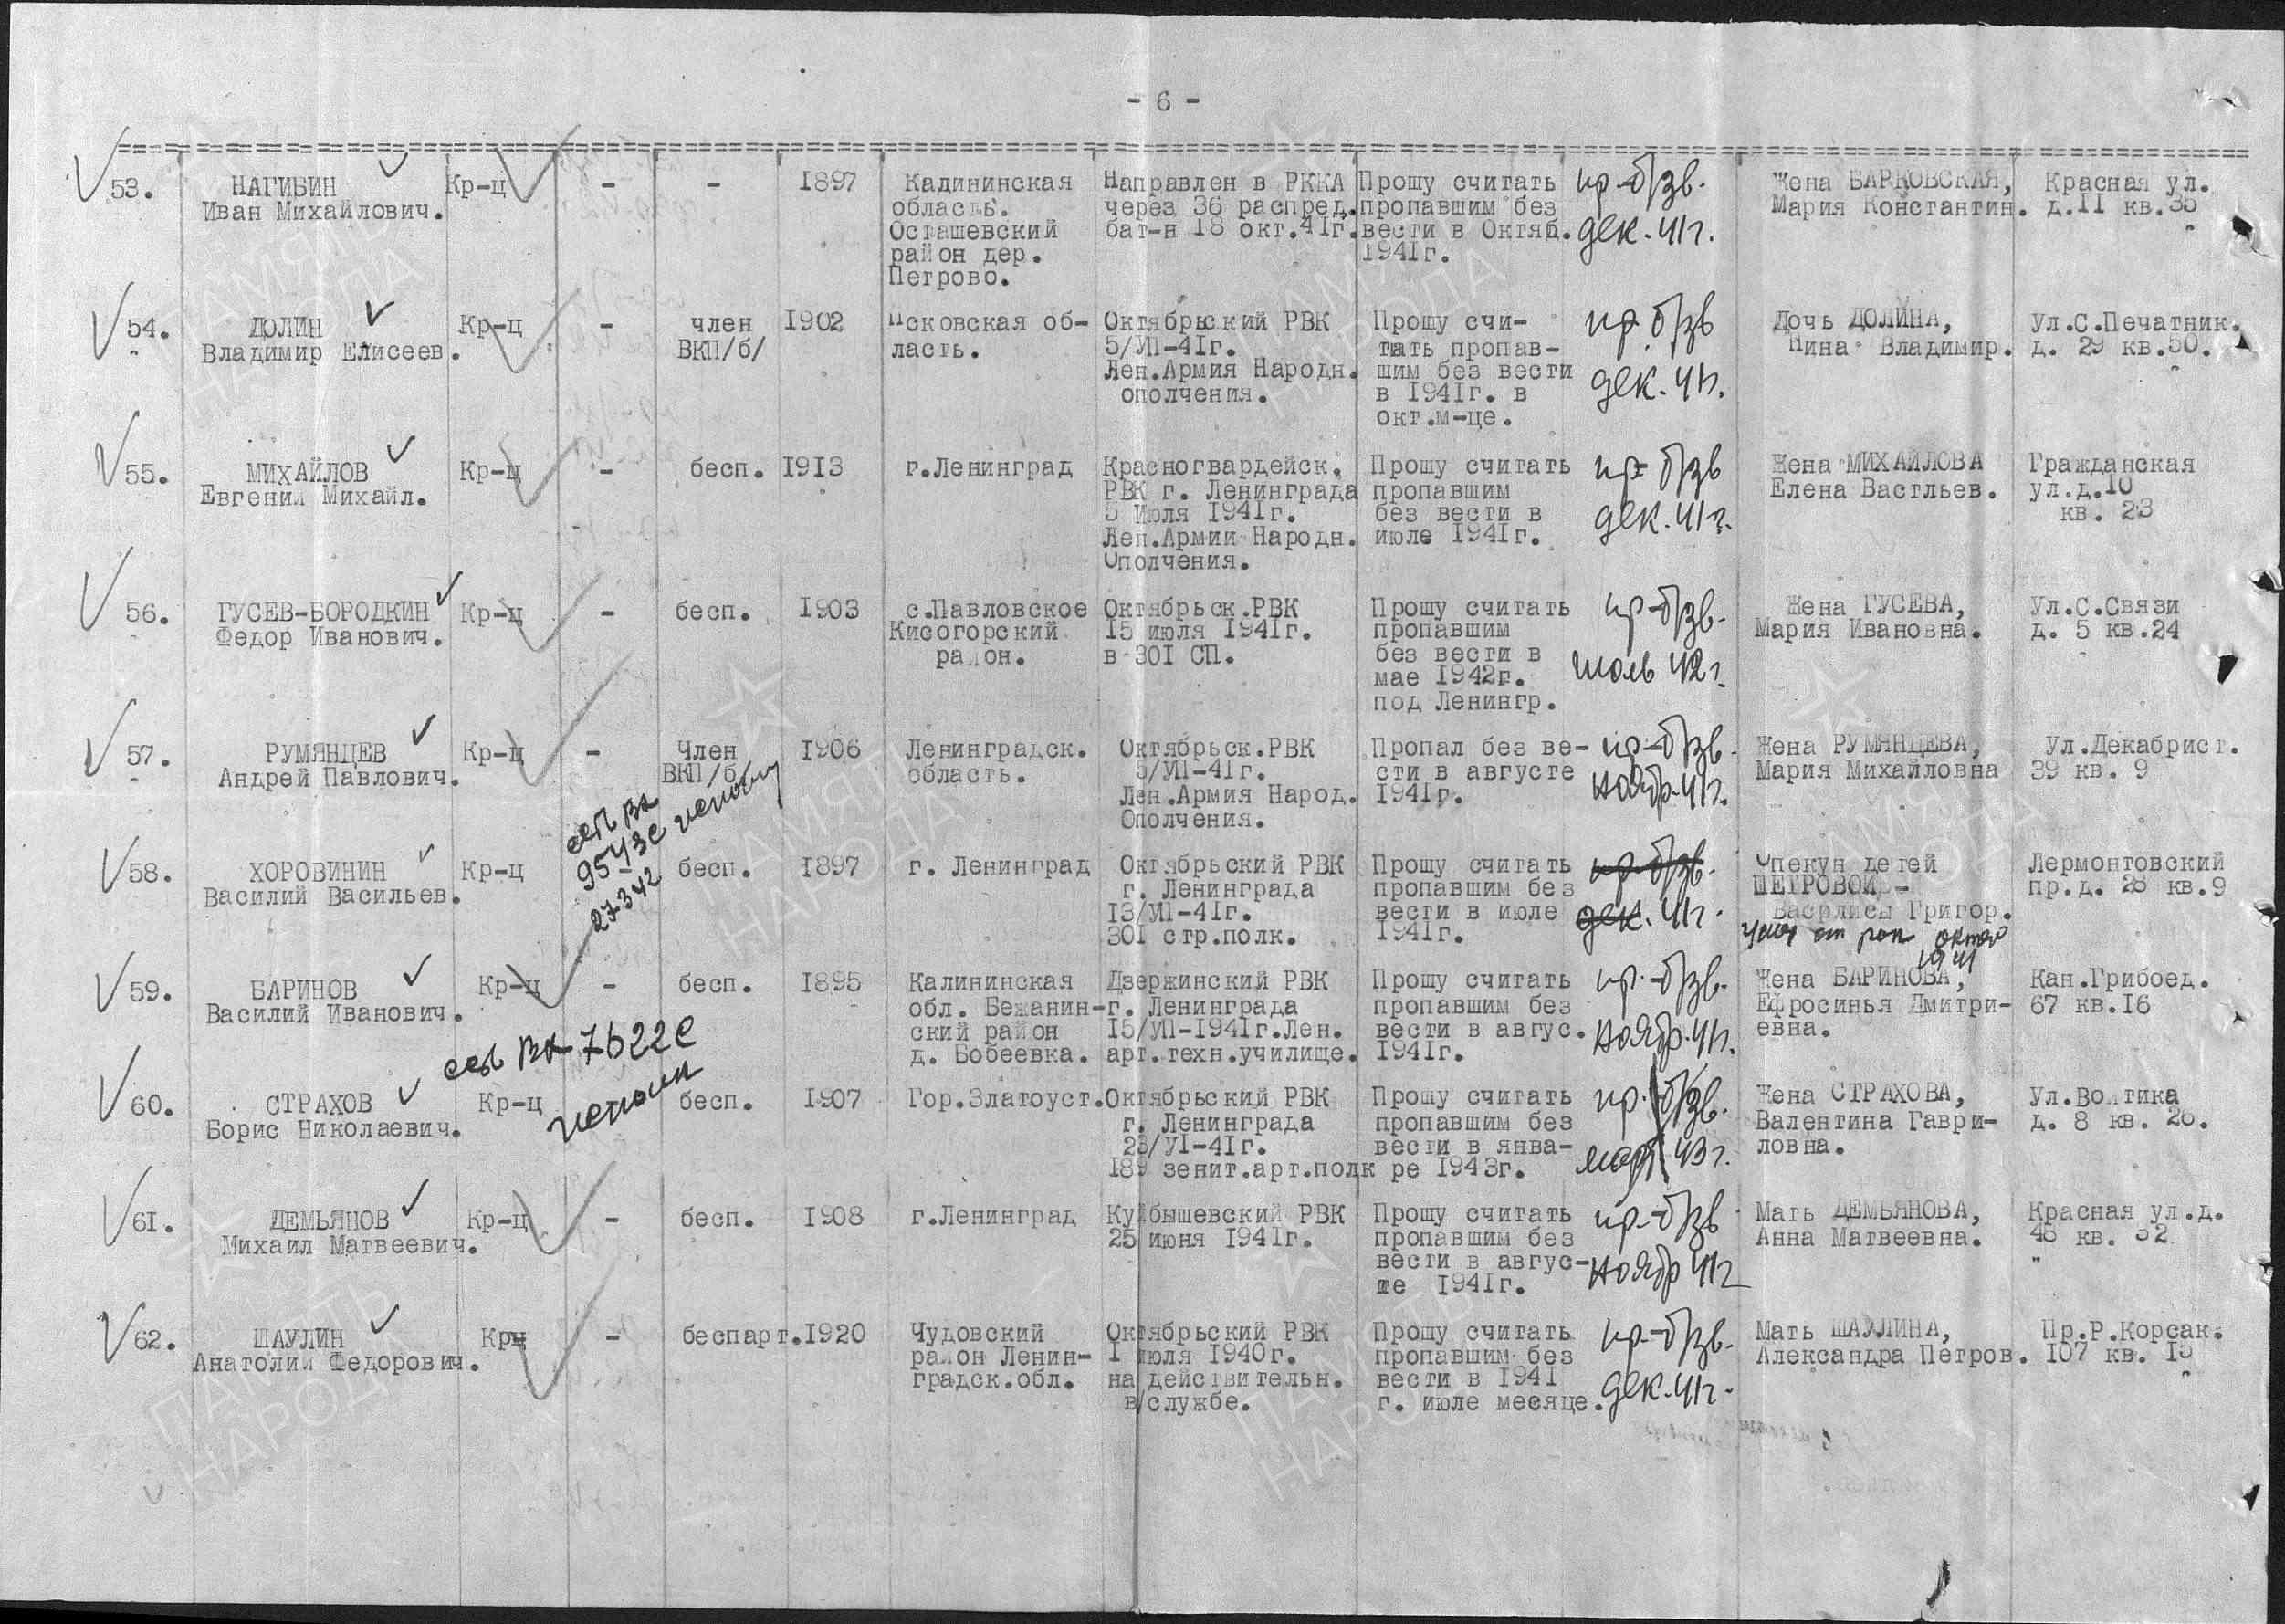 - 6 -
53. НАГИБИН Кр-ц - - 1897 Кадининская Направлен в РККА Прошу считать пр-б/зв. Жена БАРКОВСКАЯ, Красная ул.
Иван Михайлович. область. через 36 распред. пропавшим без Мария Константин. д.11 кв.35
Осташевский бат-н 18 окт.41г. вести в Октяб. дек. 41г.
район дер. 1941г.
Петрово.
54. ДОЛИН Кр-ц - член 1902 Псковская об- Октябрьский РВК Прошу счи- пр.б/зв Дочь ДОЛИНА, Ул.С.Печатник.
Владимир Елисеев. ВКП/б/ ласть. 5/УП-41г. тать пропав- Нина Владимир. д. 29 кв.50.
Лен.Армия Народн. шим без вести дек. 41г.
ополчения. в 1941г. в
окт.м-це.
55. МИХАЙЛОВ Кр-ц - бесп. 1913 г.Ленинград Красногвардейск. Прошу считать пр-б/зв Жена МИХАЙЛОВА Гражданская
Евгений Михайл. РВК г. Ленинграда пропавшим Елена Вастльев. ул.д.10
5 Июля 1941г. без вести в дек. 41г. кв. 23
Лен.Армии Народн. июле 1941г.
Ополчения.
56. ГУСЕВ-БОРОДКИН Кр-ц - бесп. 1903 с.Павловское Октябрьск.РВК Прошу считать пр-б/зв. Жена ГУСЕВА, Ул.С.Связи
Федор Иванович. Кисогорский 15 июля 1941г. пропавшим Мария Ивановна. д. 5 кв.24
район. в 301 СП. без вести в июль 42г.
мае 1942г.
под Ленингр.
57. РУМЯНЦЕВ Кр-ц - Член 1906 Ленинградск. Октябрьск.РВК Пропал без ве- пр-б/зв. Жена РУМЯНЦЕВА, Ул.Декабрист.
Андрей Павлович. ВКП/б/ область. 5/УП-41г. сти в августе Мария Михайловна 39 кв. 9
Лен.Армия Народ. 1941г. ноябр.41г.
Ополчения.
95443с
27342
58. ХОРОВИНИН Кр-ц бесп. 1897 г. Ленинград Октябрьский РВК Прошу считать пр-б/зв. Опекун детей Лермонтовский
Василий Васильев. г. Ленинграда пропавшим без ШЕТРОВОЙ - пр.д. 28 кв.9
13/УП-41г. вести в июле дек. 41г. Васрлисы Григор.
301 стр.полк. 1941г.
1941
59. БАРИНОВ Кр-ц - бесп. 1895 Калининская Дзержинский РВК Прошу считать пр.-б/зв. Жена БАРИНОВА, Кан.Грибоед.
Василий Иванович. обл. Бежанин- г. Ленинграда пропавшим без Ефросинья Дмитри- 67 кв.16
ский район 15/УП-1941г.Лен. вести в авгус. ноябр.41г. евна.
д. Бобеевка. арт.техн.училище. 1941г.
60. СТРАХОВ Кр-ц бесп. 1907 Гор.Златоуст. Октябрьский РВК Прошу считать пр.б/зв. Жена СТРАХОВА, Ул.Воитика
Борис Николаевич. г. Ленинграда пропавшим без Валентина Гаври- д. 8 кв. 26.
23/У1-41г. вести в янва- март 43г. ловна.
189 зенит.арт.полк ре 1943г.
61. ДЕМЬЯНОВ Кр-ц - бесп. 1908 г.Ленинград Куйбышевский РВК Прошу считать пр.-б/зв Мать ДЕМЬЯНОВА, Красная ул.д.
Михаил Матвеевич. 25 июня 1941г. пропавшим без Анна Матвеевна. 48 кв. 32
вести в авгус- ноябр 41г
те 1941г.
62. ШАУЛИН Крц - беспарт. 1920 Чудовский Октябрьский РВК Прошу считать пр-б/зв. Мать ШАУЛИНА, Пр.Р.Корсак.
Анатолий Федорович. район Ленин- 1 июля 1940г. пропавшим без Александра Петров. 107 кв. 15
градск.обл. на действительн. вести в 1941 дек.41г.
в/службе. г. июле месяце.
ПАМЯТЬ
НАРОДА